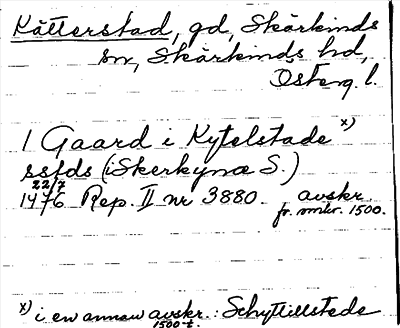 Kätterstad, gd, Skärkinds
sn, Skärkinds hd,
Österg. l.
1 Gaard i Kytelstade x)
ssfds (i Skerkynæ S.)
22/7
1476 Rep. II nr 3880. avskr.
fr. omkr. 1500.
x) i en annan avskr.: Schyttillstede
1500-t.